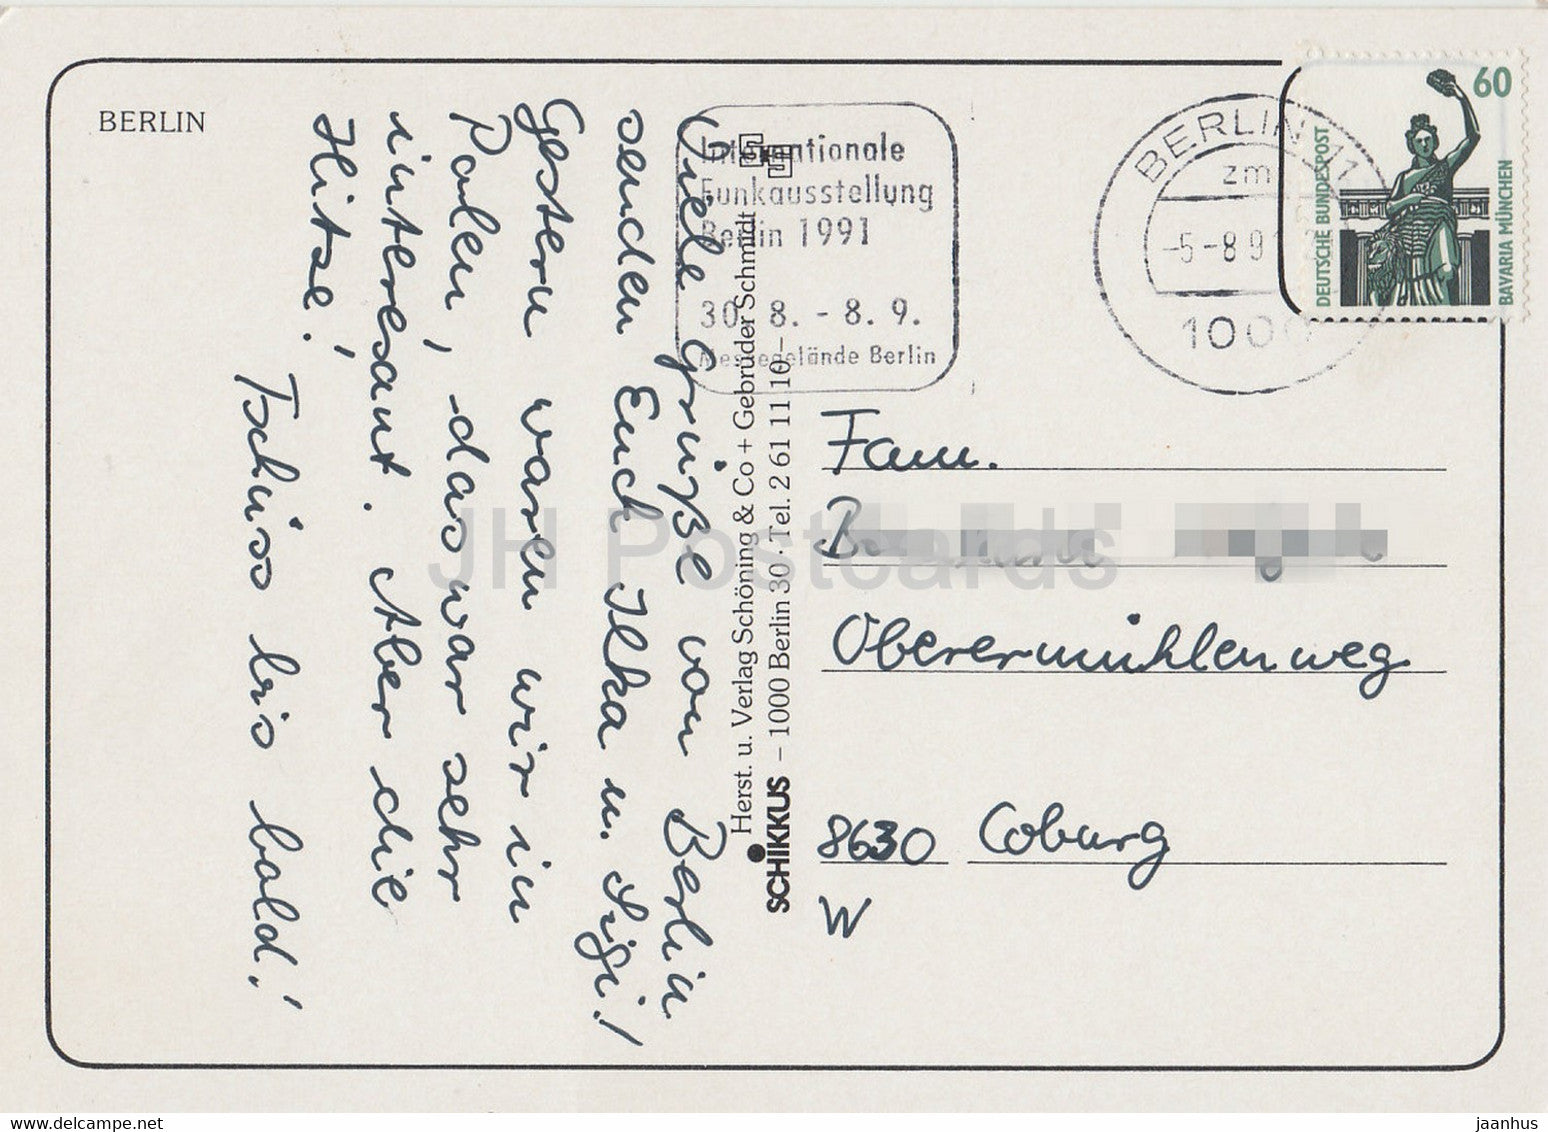 BERLIN
Viele Grüße von Berlin
senden Euch Ilka u. Sigi!
Gestern waren wir in
Polen, das war sehr
interesant. Aber die
Hitze!
Tschüss bis bald!
Herst. u. Verlag Schöning & Co + Gebrüder Schmidt
SCHIKKUS – 1000 Berlin 30 · Tel. 2 61 11 10 –
Internationale
Funkausstellung
Berlin 1991
30. 8. - 8. 9.
Messegelände Berlin
BERLIN 11
zm
-5.-8.9
1000
60
DEUTSCHE BUNDESPOST
BAVARIA MÜNCHEN
Fam.
Oberermühlenweg
8630 Coburg
W
JH Postcards
jaanhus
delcampe.net